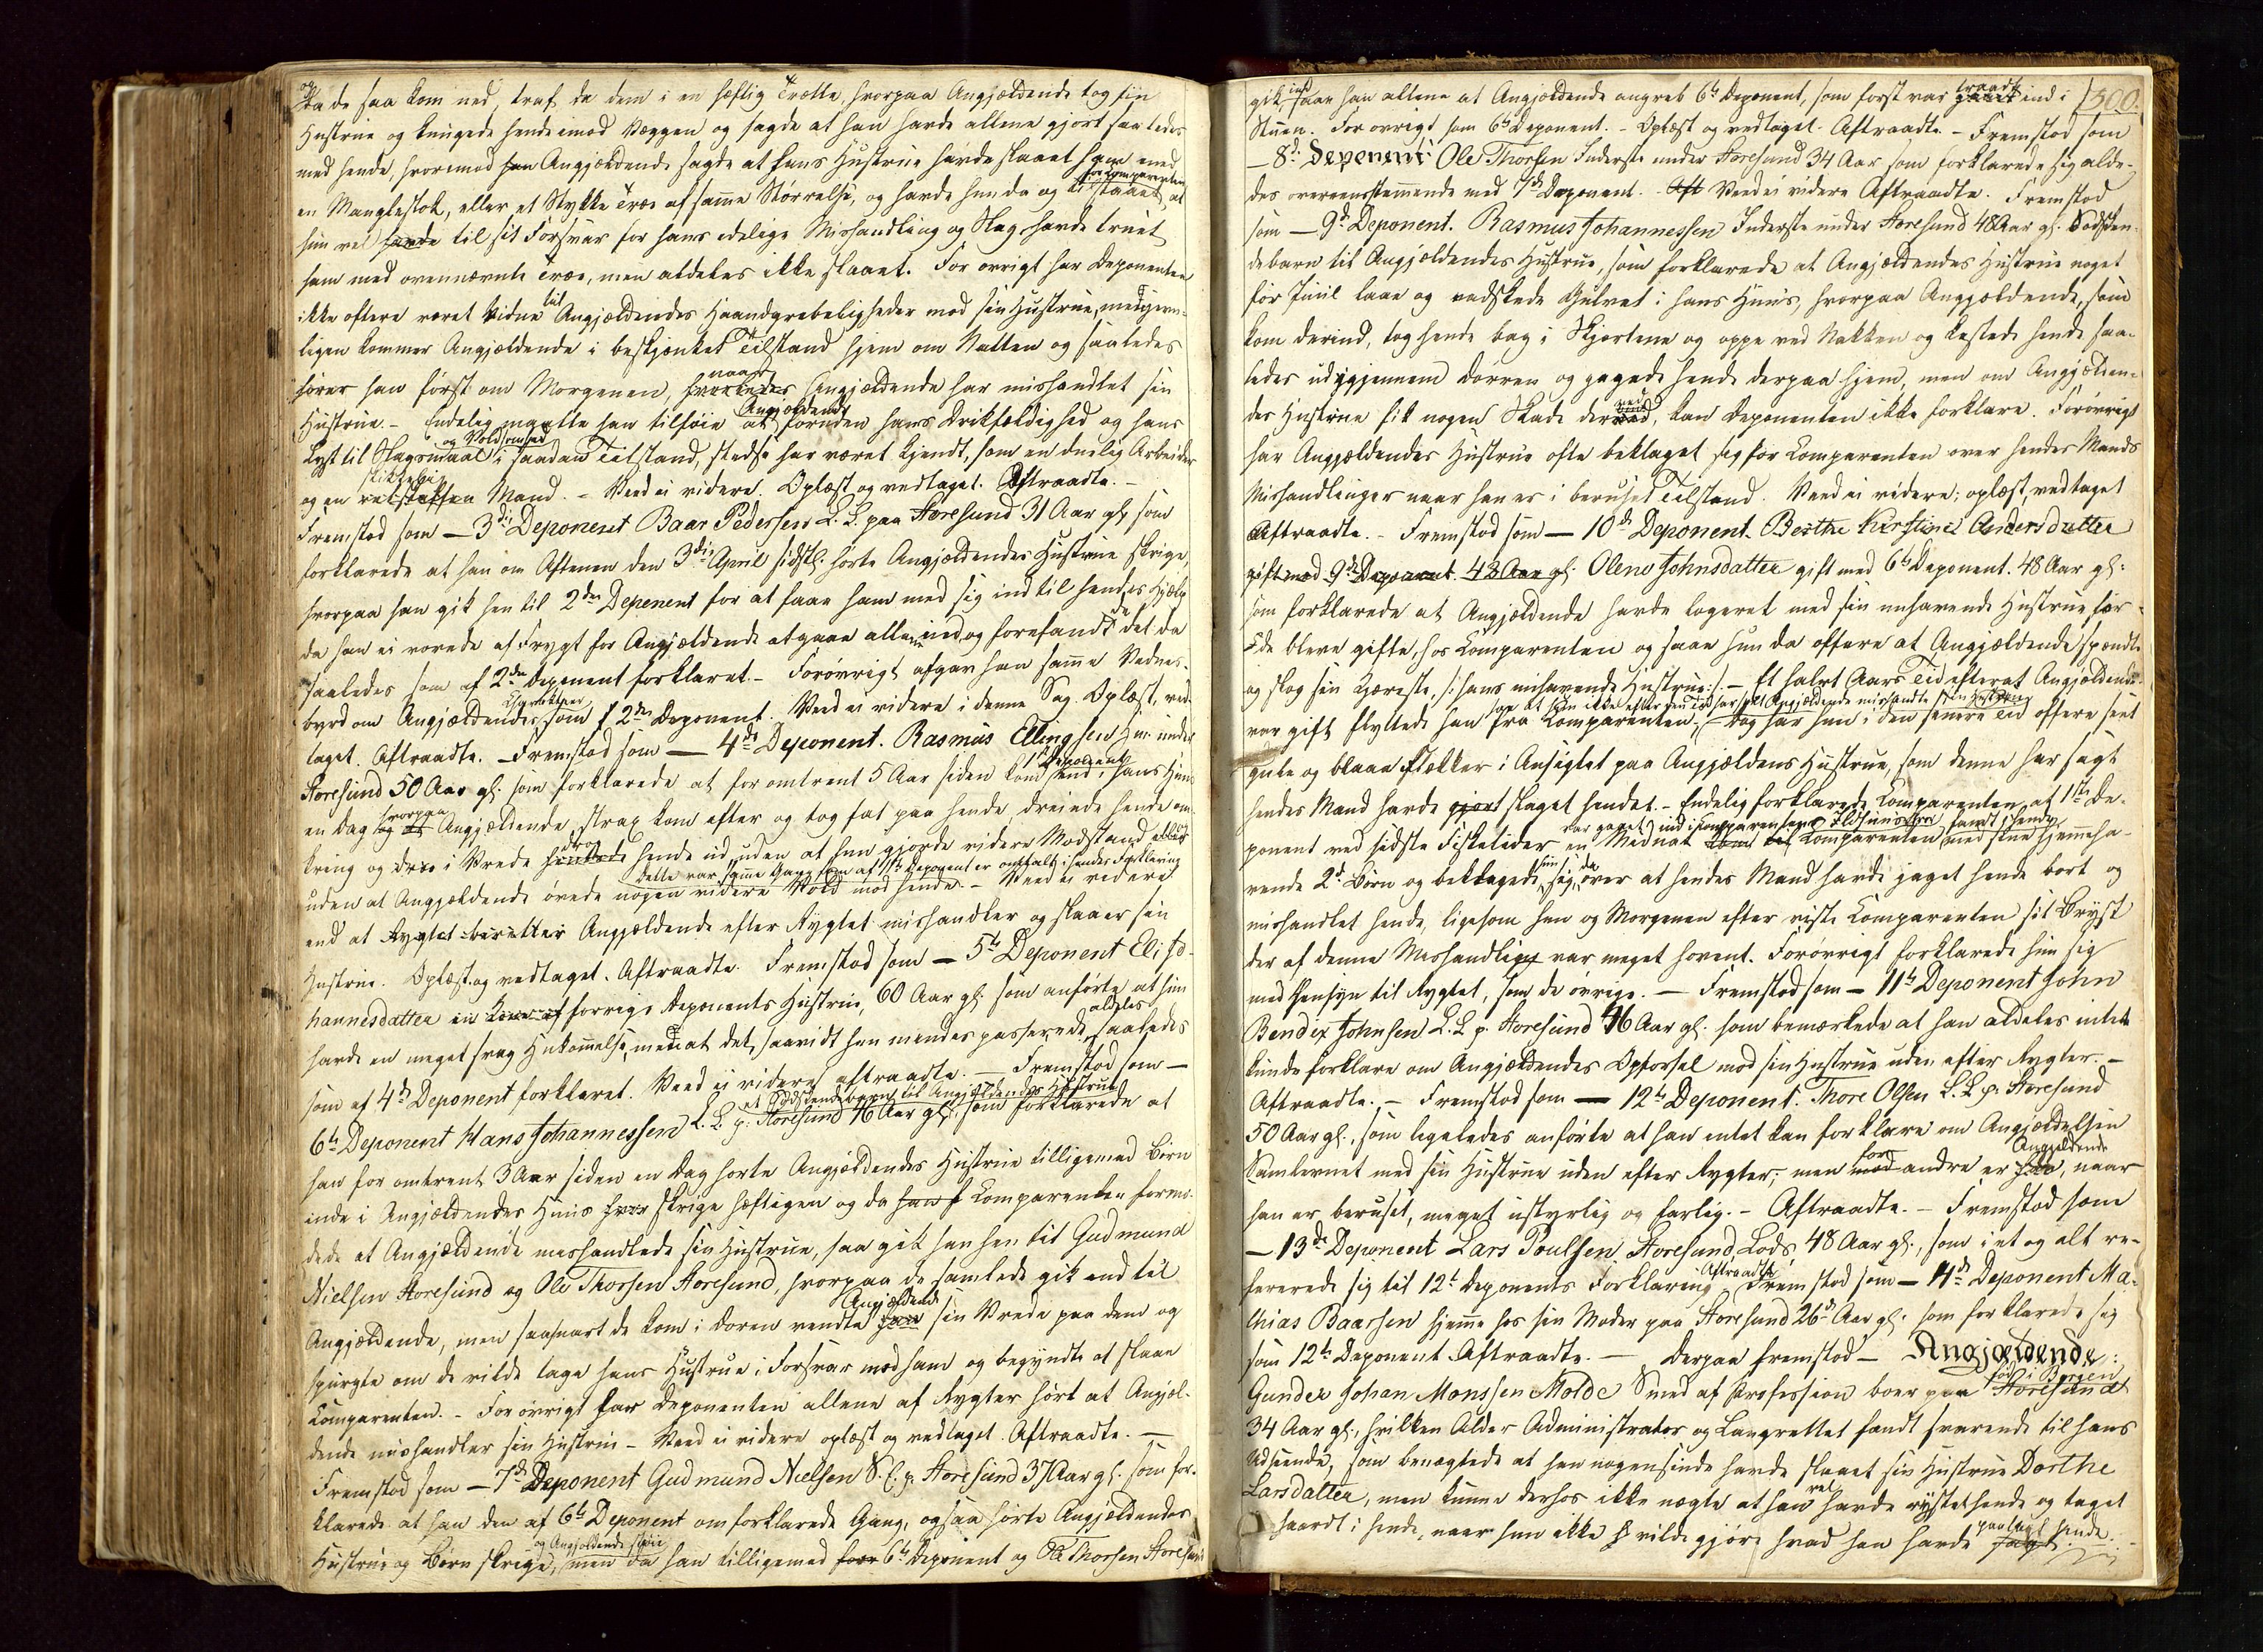 og da de saa kom ned, traf da dem i en hæftig Trætte, hvorpaa Angjældende tog sin
Hustrue og knugede hende imod Væggen og sagde at han havde allene gjort saaledes
med hende, hvorimod Angjældende sagde at hans Hustrue havde slaaet ham med
for Comparenten
en Manglestok, eller et Stykke Træe af samme Størrelse, og havde hun da og tilstaaet at
hun vel havde til sit Forsvar for hans idelige Mishandling og Slag havde truet
ham med ovennævnte Træe, men aldeles ikke slaaet. For øvrigt har Deponenten
ikke oftere været Vidne til Angjældendes Haandgribeligheder mod sin Hustrue, men gjern-
ligen kommer Angjældende i beskjænket Tilstand hjem om Natten og saaledes
hører han først om Morgenen, naar Angjældende har mishandlet sin
Hustrue. - Endelig maatte han tilføie at Angjældende foruden hans Drikfældighed og hans
Lyst til Slagsmaal og Voldsomhed i saadan Tilstand, stedse har været kjendt, som en duelig Arbeider
og en skikkelig Mand. - Veed ei videre. Oplæst og vedtaget. Aftraadte. -
Fremstod som - 3die Deponent Baar Pedersen L. L. paa Horesund 31 Aar gl. som
forklarede at han om Aftenen den 3die April sidstl. hørte Angjældendes Hustrue skrige,
hvorpaa han gik hen til 2den Deponent for at faae ham med sig ind til hendes Hjelp
da han ei vovede af Frygt for Angjældende at gaae allene ind, og forefandt de det da
saaledes som af 2den Deponent forklaret. - Forøvrigt afgav han samme Vidnes-
byrd om Angjældendes Charakteer som 2den Deponent. Veed ei videre i denne Sag. Oplæst, ved-
taget. Aftraadte. - Fremstod som - 4de Deponent. Rasmus Ellingsen Hm. under
Horesund 50 Aar gl. som forklarede at for omtrent 5 Aar siden kom 1ste Deponent ind i hans Huus
en Dag hvorpaa Angjældende strax kom efter og tog fat paa hende, dreiede hende om-
kring og drev i Vrede hende ud, uden at hun gjorde videre Modstand eller
dette var samme Gang som af 1ste Deponent er omtalt i hendes Forklaring
uden at Angjældende øvede nogen videre Vold mod hende. - Veed ei videre
end at Angjældende efter Rygtet mishandler og slaaer sin
Hustrue. Oplæst og vedtaget. Aftraadte. Fremstod som - 5te Deponent Eli Jo-
hannesdatter forrige Deponents Hustrue, 60 Aar gl. som anførte at hun
havde en meget svag Hukommelse, men at det, saavidt hun mindes passerede aldeles saaledes
som af 4de Deponent forklaret. Veed ei videre aftraadte. - Fremstod som -
et Sødskendebarn til Angjældendes Hustrue
6te Deponent Hans Johannessen L. L. p. Horesund 46 Aar gl. som forklarede at
han for omtrent 3 Aar siden en Dag hørte Angjældendes Hustrue tilligemed Børn
inde i Angjældendes Huus skrige hæftigen og da Comparenten formo-
dede at Angjældende mishandlede sin Hustrue, saa gik han hen til Gudmund
Nielsen Horesund og Ole Thorsen Horesund, hvorpaa de samlede gik ind til
Angjældende, men saasnart de kom i Døren vendte Angjældende sin Vrede paa dem og
spurgte om de vilde tage hans Hustrue i Forsvar mod ham og begyndte at slaae
Comparenten. - Forøvrigt har Deponenten allene af Rygter hørt at Angjæl-
dende mishandler sin Hustrue - Veed ei videre oplæst og vedtaget. Aftraadte. -
Fremstod som - 7de Deponent Gudmund Nielsen S. E. p. Horesund 37 Aar gl. som for-
klarede at han den af 6te Deponent omforklarede Gang, ogsaa hørte Angjældendes
og Angjældende støie
Hustrue og Børn skrige, men da han tilligemed 6te Deponent og Ole Thorsen Horesund
300.
gik ind saae han allene at Angjældende angreb 6te Deponent, som først var traadt ind i
Stuen. For øvrigt som 6te Deponent. - Oplæst og vedtaget. Aftraadte. - Fremstod som
- 8de Deponent Ole Thorsen Inderste under Horesund 34 Aar, som forklarede sig alde-
des overeensstemmende med 7de Deponent. - Veed ei videre Aftraadte. Fremstod
som - 9de Deponent. Rasmus Johannessen Inderste under Horesund 48 Aar gl. Sødsken-
debarn til Angjældendes Hustrue, som forklarede at Angjældendes Hustrue noget
før Juul laae og vadskede Gulvet i hans Huus, hvorpaa Angjældende, som
kom derind, tog hende bag i Skjørtene og oppe ved Nakken og kastede hende saa-
ledes ud igjennem Dørren og jagede hende derpaa hjem, men om Angjælden-
des Hustrue fik nogen Skade derved, kan Deponenten ikke forklare. Forøvrigt
har Angjældendes Hustrue ofte beklaget sig for Comparenten over hendes Mands
Mishandlinger naar han er i beruset Tilstand. Veed ei videre; oplæst, vedtaget
Aftraadte. - Fremstod som - 10de Deponent. Berthe Kirstine Andersdatter
gift med 9de Deponent 48 Aar gl. Olene Johnsdatter gift med 6te Deponent. 48 Aar gl.
som forklarede at Angjældende havde logeret med sin nuhavende Hustrue før
de bleve gifte, hos Comparenten og saae hun da oftere at Angjældende spændte
og slog sin Kjæreste, /: hans nuhavende Hustrue :/. - Et halvt Aars Tid efterat Angjældende
og at hun ikke efter den Tid har seet Angjældende mishandle sin Hustrue
var gift flyttede han fra Comparenten, Dog har hun i den senere Tid oftere seet
gule og blaae Flækker i Ansigtet paa Angjældens Hustrue, som denne har sagt
hendes Mand havde gjort slaget hende. - Endelig forklarede Comparenten at 1ste De-
var jaget ind i Comparentens Ildhuus fandt hende
ponent ved sidste Fisketider en Midnat Comparenten med sine hjemmeha-
vende 2de Børn og beklagede hun sig da over at hendes Mand havde jaget hende bort og
mishandlet hende, ligesom hun og Morgenen efter viste Comparenten sit Bryst
der af denne Mishandling var meget hovent. Forøvrigt forklarede hun sig
med Hensyn til Rygtet, som de øvrige. - Fremstod som - 11te Deponent John
Bendix Johnsen L. L. p. Horesund 46 Aar gl. som bemærkede at han aldeles intet
kunde forklare om Angjældendes Opførsel mod sin Hustrue uden efter Rygter. -
Aftraadte. - Fremstod som - 12te Deponent. Thore Olsen L. L. p. Horesund
50 Aar gl., som ligeledes anførte at han intet kan forklare om Angjældelsen
Samlevnet med sin Hustrue uden efter Rygter, men for andre er Angjældende, naar
han er beruset, meget ustyrlig og farlig. - Aftraadte. - Fremstod som
- 13de Deponent Lars Poulsen Horesund, Lods 48 Aar gl., som i et og alt re-
fererede sig til 12te Deponents Forklaring Aftraadte Fremstod som - 14de Deponent Ma-
thias Baarsen hjemme hos sin Moder paa Horesund 26de Aar gl. som forklarede sig
som 12te Deponent Aftraadte. - Derpaa fremstod - Angjældende:
Gunder Johan Monssen Molde Smed af Profession boer paa Horesund født i Bergen
34 Aar gl., hvilken Alder Administrator og Laugrettet fandt svarende til hans
Udseende, som benægtede at han nogensinde havde slaaet sin Hustrue Dorthe
Larsdatter, men kunne derhos ikke nægte at han vel havde rystet hende og taget
haardt i hende, naar hun ikke vilde gjøre hvad han havde paalagt hende.